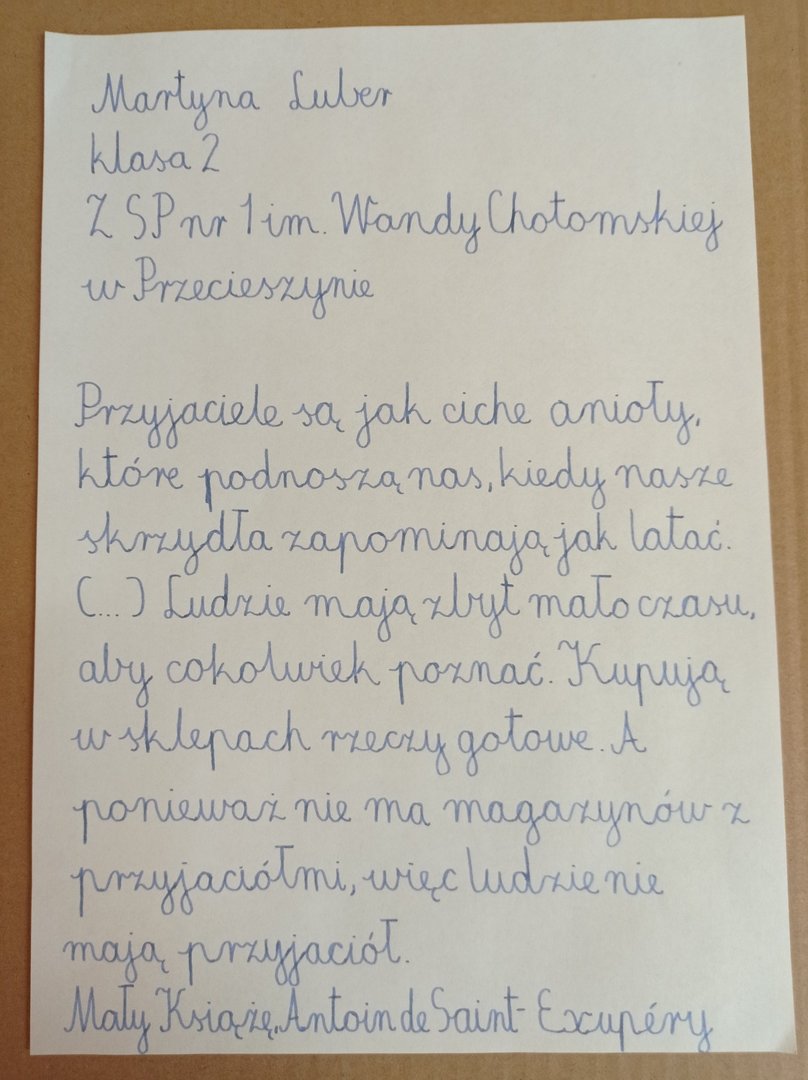 Martyna Luber
klasa 2
Z SP nr 1 im. Wandy Chotomskiej
w Przecieszynie
Przyjaciele są jak ciche anioły,
które podnoszą nas, kiedy nasze
skrzydła zapominają jak latać.
(...) Ludzie mają zbyt mało czasu,
aby cokolwiek poznać. Kupują
w sklepach rzeczy gotowe. A
ponieważ nie ma magazynów z
przyjaciółmi, więc ludzie nie
mają przyjaciół.
Mały Książę, Antoin de Saint-Exupéry